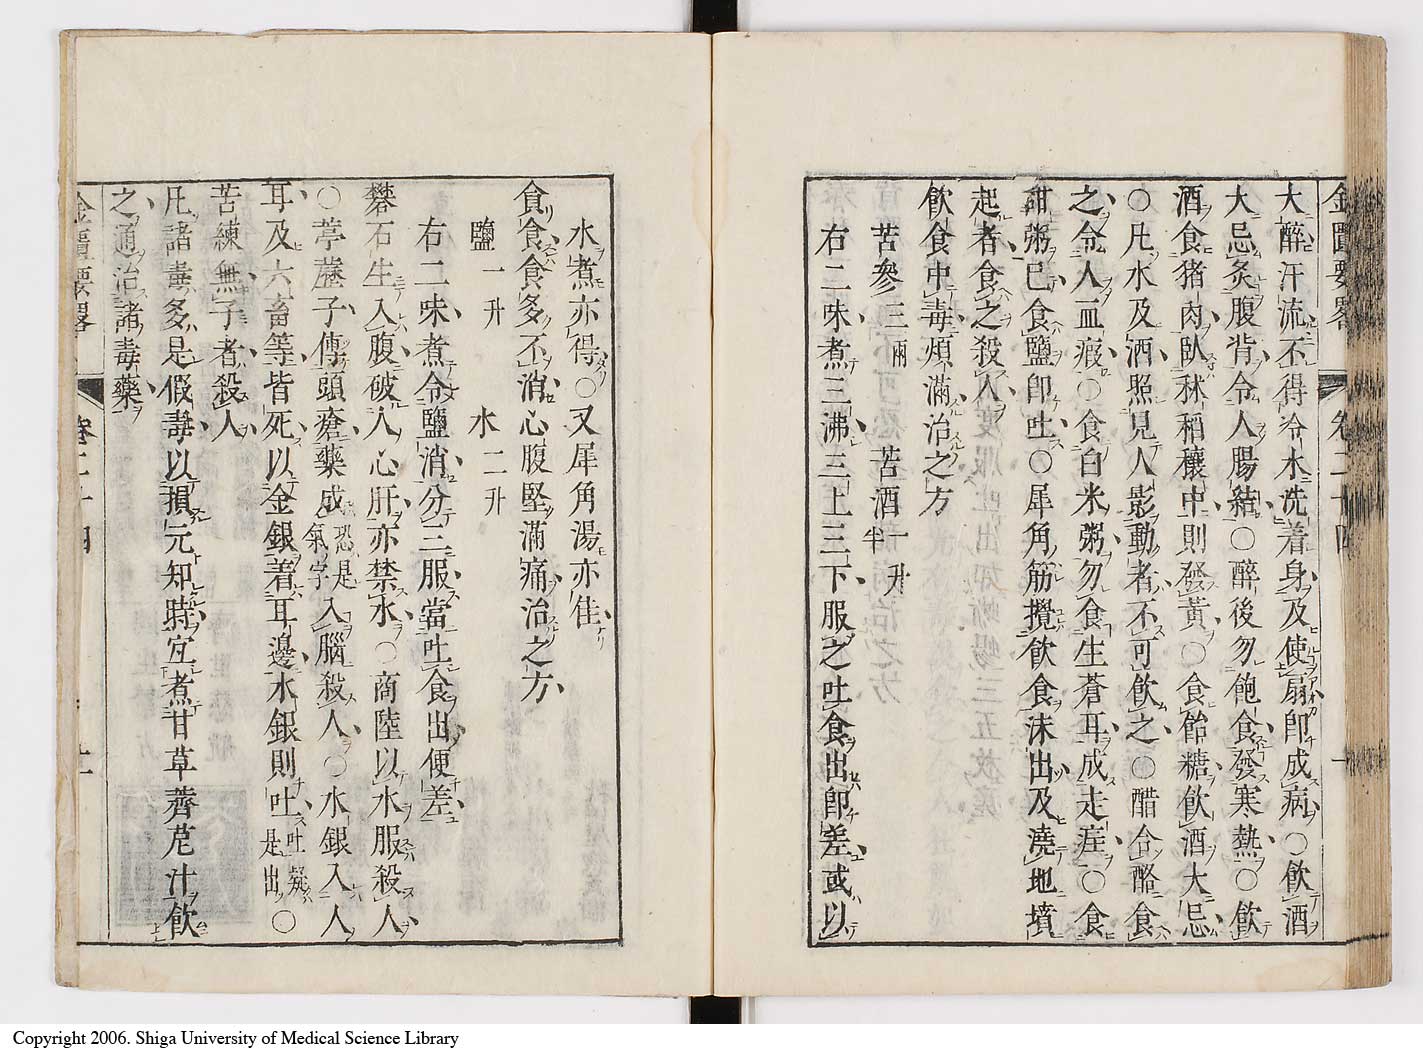 金匱要畧 卷二十四
大醉汗流不得冷水洗着身及使扇即成病○飲酒
大忌灸腹背令人腸結○醉後勿飽食發寒熱○飲
酒食猪肉臥秫稻穰中則發黃○食飴糖飲酒大忌
○凡水及酒照見人影動者不可飲之○醋合酪食
之令人血瘕○食白米粥勿食生蒼耳成走疰○食
甜粥已食鹽即吐○犀角筋攪飲食沫出及澆地墳
起者食之殺人
飲食中毒煩滿治之方
苦參三兩 苦酒一升半
右二味煮三沸三上三下服之吐食出即差或以
水煮亦得○又犀角湯亦佳
貪食食多不消心腹堅滿痛治之方
鹽一升 水二升
右二味煮令鹽消分三服當吐食出便差
礬石生入腹破人心肝亦禁水○商陸以水服殺人
○葶藶子傅頭瘡藥成恐是氣字入腦殺人○水銀入人
耳及六畜等皆死以金銀着耳邊水銀則吐吐疑是出○
苦練無子者殺人
凡諸毒多是假毒以損元知時宜煮甘草薺苨汁飲
之通治諸毒藥
金匱要畧 卷二十四
Copyright 2006. Shiga University of Medical Science Library